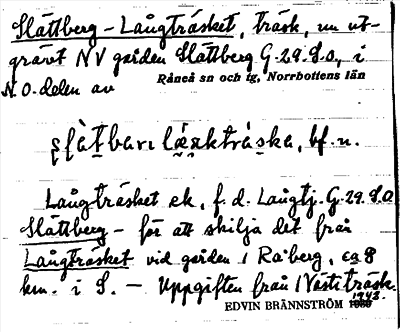 Slättberg - Långträsket, träsk, nu ut-
grävt NV gården Slättberg G. 29. S.O., i
Råneå sn och tg, Norrbottens län
N.O. delen av
bf. n.
Långträsket ek, f. d. Långtj. G. 29. S.O
Slättberg - för att skilja det från
Långträsket vid gården i Råberg, ca 8
km. i S. - Uppgiften från i Västiträsk.
EDVIN BRÄNNSTRÖM 1943.